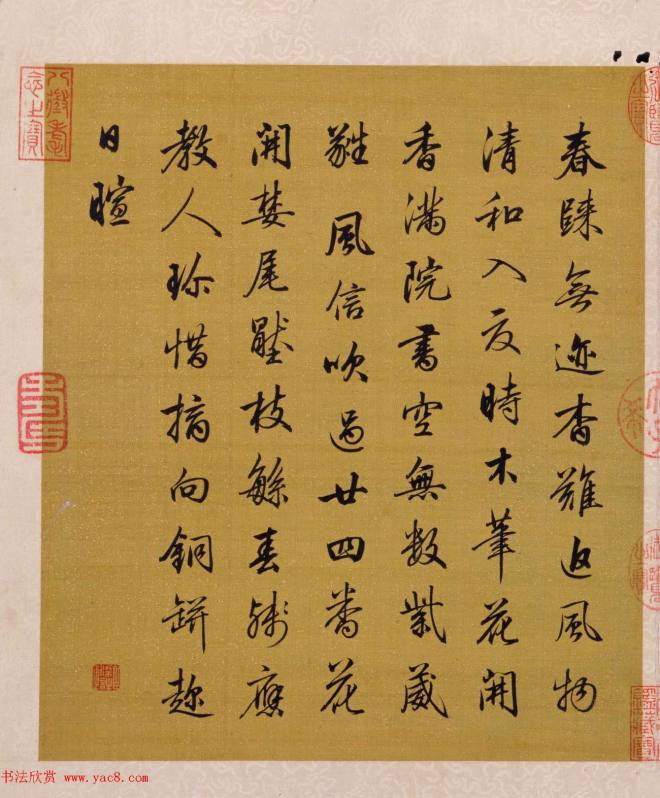 春歸無迹杳難追風物
清和入夏時木筆花開
香滿院書空無數紫葳
蕤風信吹過廿四番花
開婪尾壓枝緐春殘應
教人珍惜摘向銅缾趂
日暄
八徵耄念之寶
书法欣赏 www.yac8.com